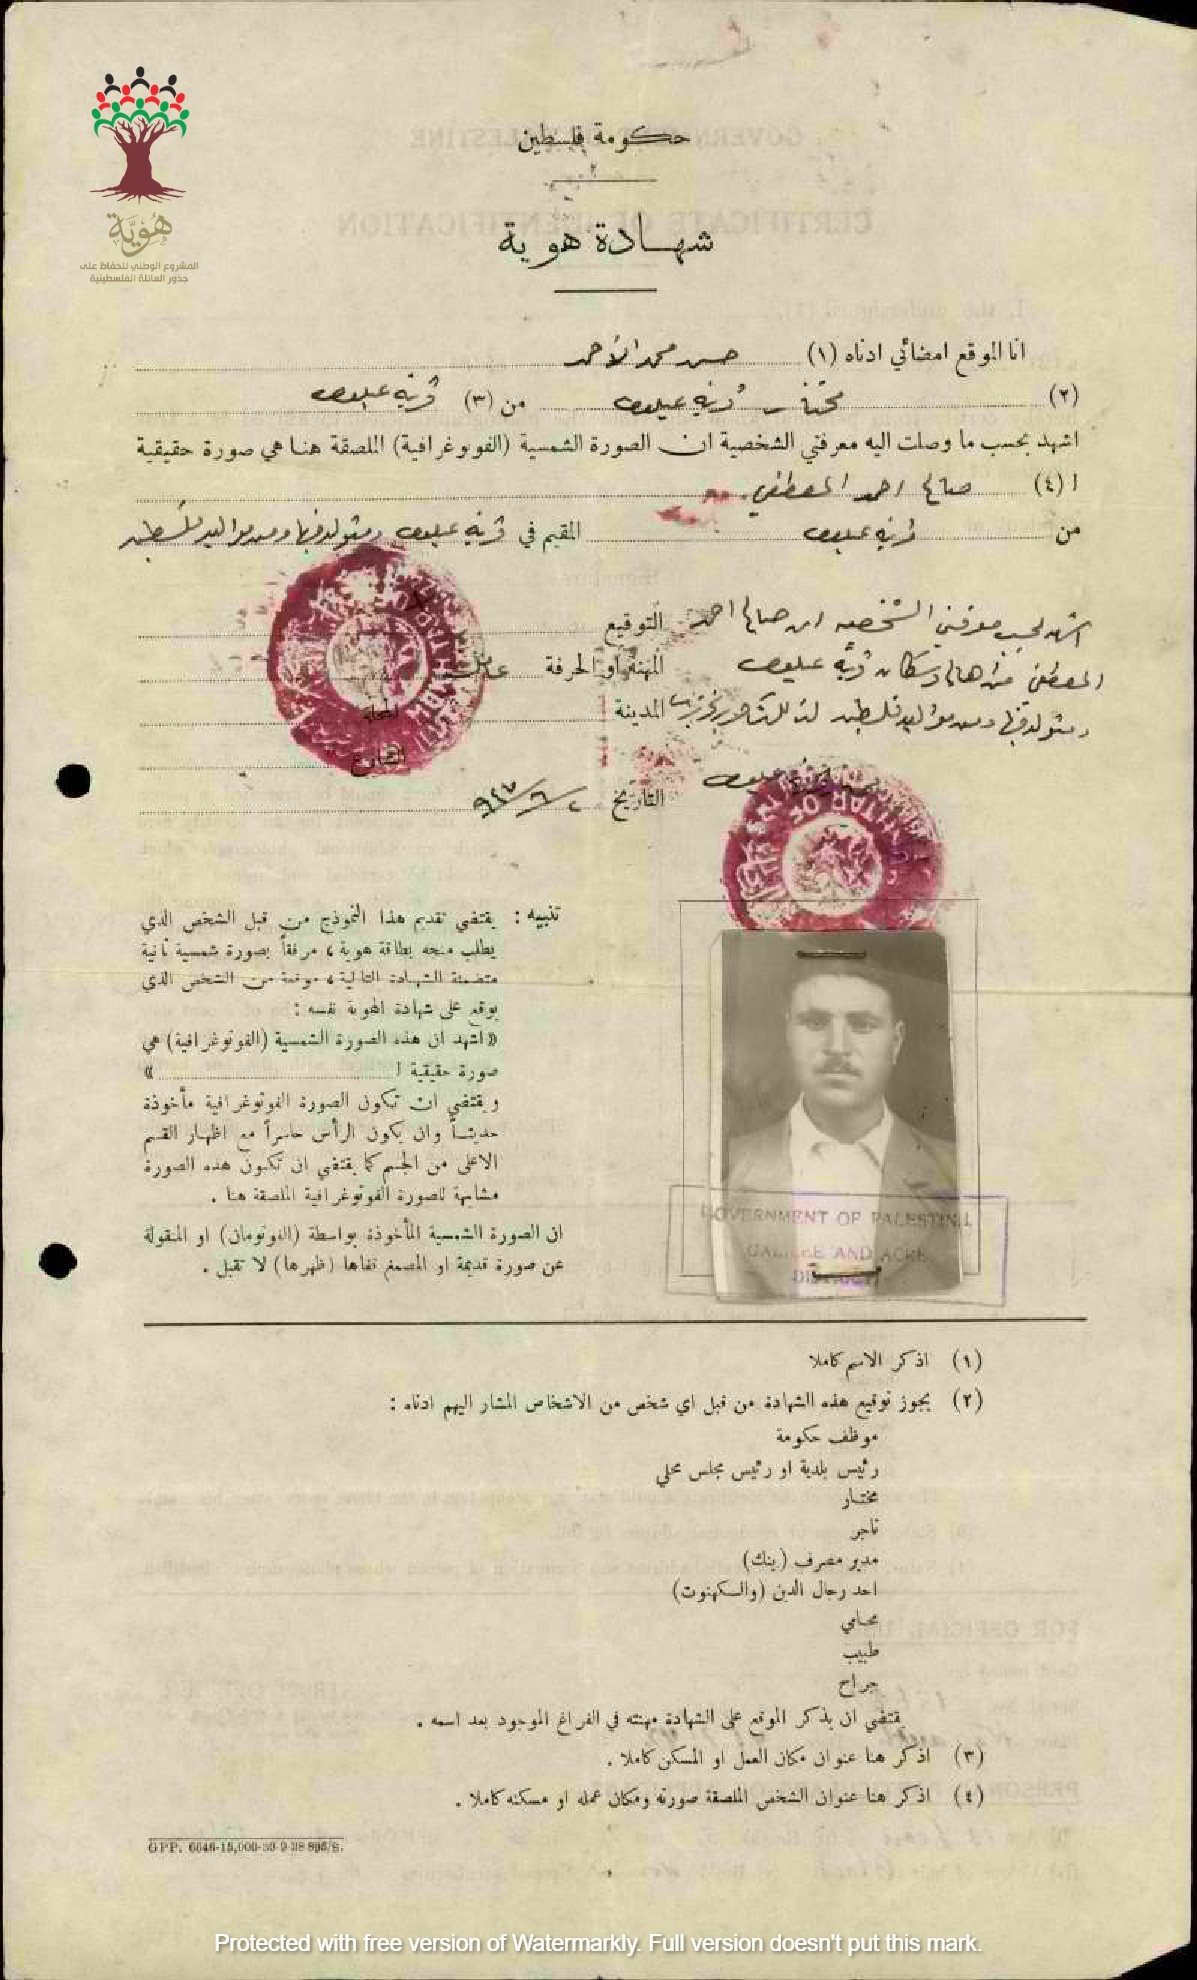 هُوِيَّة
المشروع الوطني للحفاظ على
جذور العائلة الفلسطينية
حكومة فلسطين
شهادة هوية
انا الموقع امضائي ادناه (١) حسن محمد الأحمد
(٢) مختار قرية عيلبون من (٣) قرية عيلبون
اشهد بحسب ما وصلت اليه معرفتي الشخصية ان الصورة الشمسية (الفوتوغرافية) الملصقة هنا هي صورة حقيقية
ا (٤) صالح احمد المصطفى
من قرية عيلبون المقيم في قرية عيلبون ومتولد فيها ومن مواليد فلسطين
اشهد بحسب معرفتي الشخصيه ان صالح احمد
المصطفى من اهالي وسكان قرية عيلبون
ومتولد فيها ومن مواليد فلسطين
التوقيع
المهنة او الحرفة
المدينة
المحلة
الشارع
التاريخ
MUKHTAR OF
تنبيه : يقتضي تقديم هذا النموذج من قبل الشخص الذي
يطلب منحه بطاقة هوية ، مرفقاً بصورة شمسية ثانية
متضمنة الشهادة التالية ، موقعة من الشخص الذي
يوقع على شهادة الهوية نفسه :
« اشهد ان هذه الصورة الشمسية (الفوتوغرافية) هي
صورة حقيقية ا »
ويقتضي ان تكون الصورة الفوتوغرافية مأخوذة
حديثاً وان يكون الرأس حاسراً مع اظهار القسم
الاعلى من الجسم كما يقتضي ان تكون هذه الصورة
مشابهة للصورة الفوتوغرافية الملصقة هنا .
ان الصورة الشمسية المأخوذة بواسطة (الفوتومان) او المنقولة
عن صورة قديمة او المصمغ قفاها (ظهرها) لا تقبل .
GOVERNMENT OF PALESTINE
GALILEE AND ACRE
DISTRICT
(١) اذكر الاسم كاملا
(٢) يجوز توقيع هذه الشهادة من قبل اي شخص من الاشخاص المشار اليهم ادناه :
موظف حكومة
رئيس بلدية او رئيس مجلس محلي
مختار
تاجر
مدير مصرف (بنك)
احد رجال الدين (والكهنوت)
محامي
طبيب
جراح
يقتضي ان يذكر الموقع على الشهادة مهنته في الفراغ الموجود بعد اسمه .
(٣) اذكر هنا عنوان مكان العمل او المسكن كاملا .
(٤) اذكر هنا عنوان الشخص الملصقة صورته ومكان عمله او مسكنه كاملا .
GPP. 6646-15,000-30-9-38 895/S.
Protected with free version of Watermarkly. Full version doesn't put this mark.